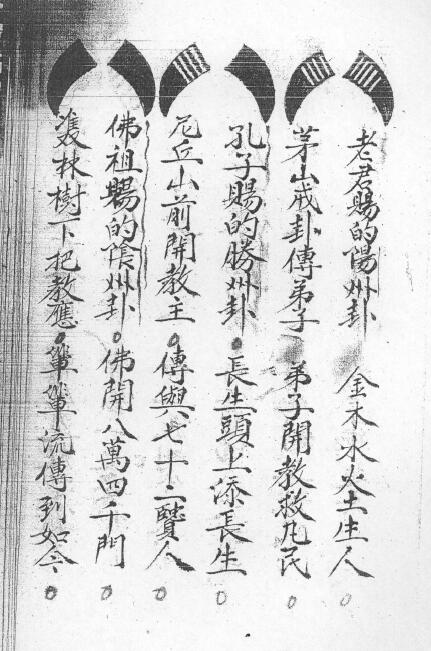 老君賜的陽卦 金木水火土生人
茅山戒卦傳弟子 弟子開教救凡民
孔子賜的勝卦 長生頭上添長生
尼丘山前開教主 傳與七十二賢人
佛祖賜的陰卦 佛開八萬四千門
林樹下把教應 輩輩流傳到如今